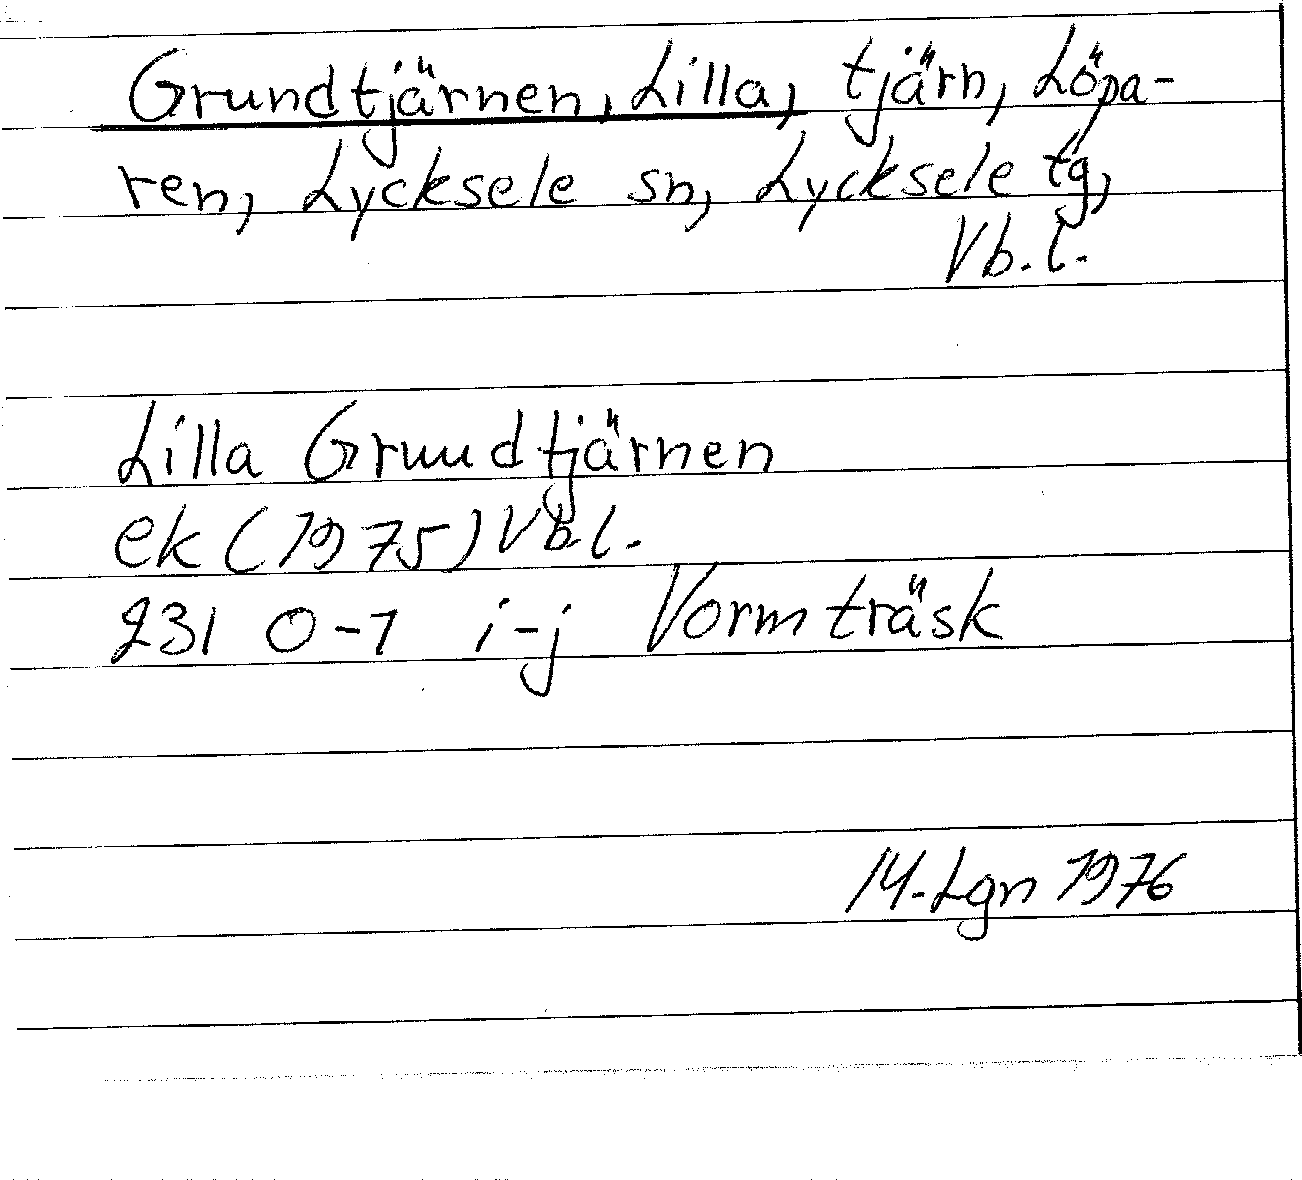 Grundtjärnen, Lilla, tjärn, Löpa-
ren, Lycksele sn, Lycksele tg,
Vb.l.
Lilla Grundtjärnen
ek (1975) Vb.l.
231 0-1 i-j Vormträsk
M. Lgn 1976